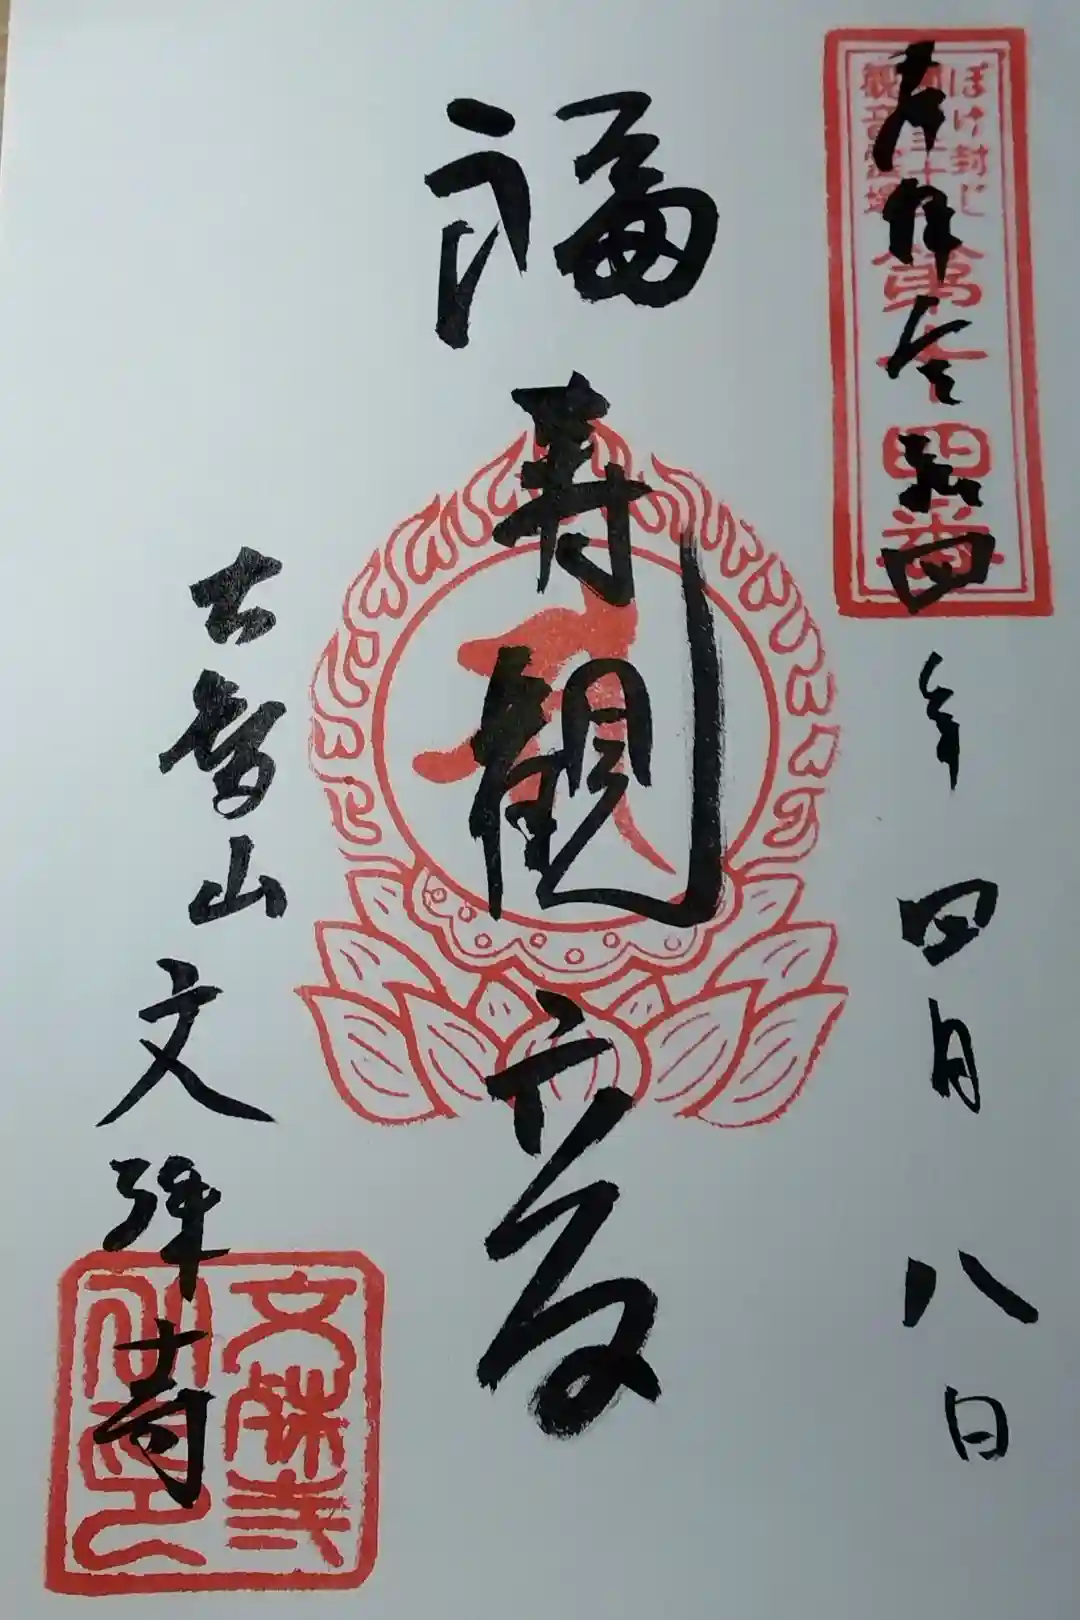 ぼけ封じ
観音霊場
第十四番
奉拝 令和四年四月八日
福寿観音
文殊寺
文殊寺